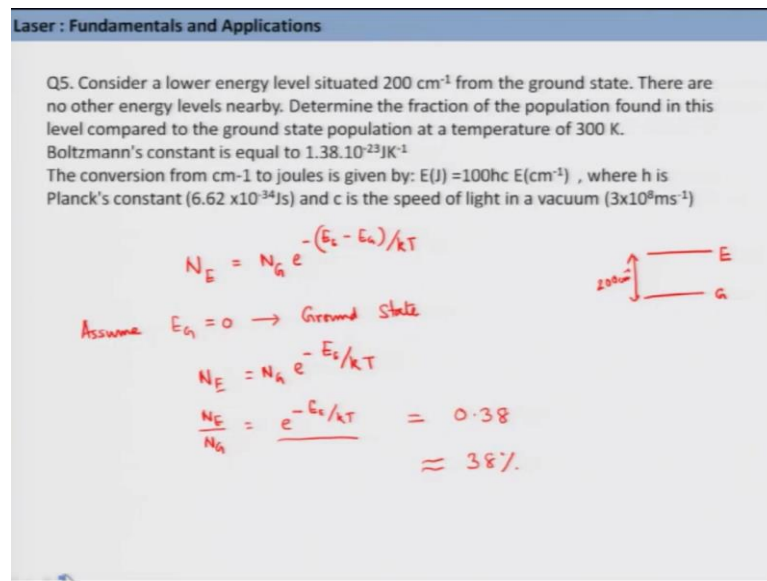 Laser : Fundamentals and Applications
Q5. Consider a lower energy level situated 200 cm⁻¹ from the ground state. There are
no other energy levels nearby. Determine the fraction of the population found in this
level compared to the ground state population at a temperature of 300 K.
Boltzmann's constant is equal to 1.38.10⁻²³JK⁻¹
The conversion from cm-1 to joules is given by: E(J) =100hc E(cm⁻¹) , where h is
Planck's constant (6.62 x10⁻³⁴Js) and c is the speed of light in a vacuum (3x10⁸ms⁻¹)
N_E = N_G e^{-(E_E - E_G)/kT}
E
200cm⁻¹
G
Assume E_G = 0 → Ground State
N_E = N_G e^{-E_E/kT}
N_E/N_G = e^{-E_E/kT} = 0.38
≈ 38%.